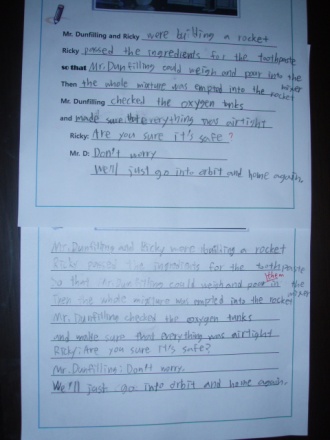 Mr. Dunfilling and Ricky were building a rocket
Ricky passed the ingredients for the toothpaste
so that Mr. Dunfilling could weigh and pour into the mixer
Then the whole mixture was emptied into the rocket
Mr. Dunfilling checked the oxygen tanks
and made sure that everything was airtight
Ricky: Are you sure it's safe?
Mr. D: Don't worry
We'll just go into orbit and home again.
Mr. Dunfilling and Ricky were builling a rocket
Ricky passed the ingredients for the toothpaste
So that Mr. Dunfilling could weigh and pour them in the mixer
Then the whole mixture was empted into the rocket
Mr. Dunfilling checked the oxygen tanks
and made sure that everything was airtight
Ricky: Are you sure it's safe?
Mr. Dunfilling: Don't worry.
We'll just go into orbit and home again.